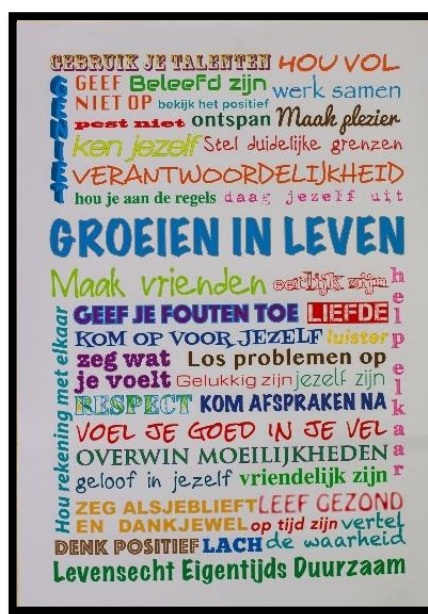 GEBRUIK JE TALENTEN HOU VOL
GENIET
GEEF Beleefd zijn werk samen
NIET OP bekijk het positief
pest niet ontspan Maak plezier
ken jezelf Stel duidelijke grenzen
VERANTWOORDELIJKHEID
hou je aan de regels daag jezelf uit
GROEIEN IN LEVEN
Maak vrienden eerlijk zijn
help elkaar
Hou rekening met elkaar
GEEF JE FOUTEN TOE LIEFDE
KOM OP VOOR JEZELF luister
zeg wat Los problemen op
je voelt Gelukkig zijn jezelf zijn
RESPECT KOM AFSPRAKEN NA
VOEL JE GOED IN JE VEL
OVERWIN MOEILIJKHEDEN
geloof in jezelf vriendelijk zijn
ZEG ALSJEBLIEFT LEEF GEZOND
EN DANKJEWEL op tijd zijn vertel
DENK POSITIEF LACH de waarheid
Levensecht Eigentijds Duurzaam